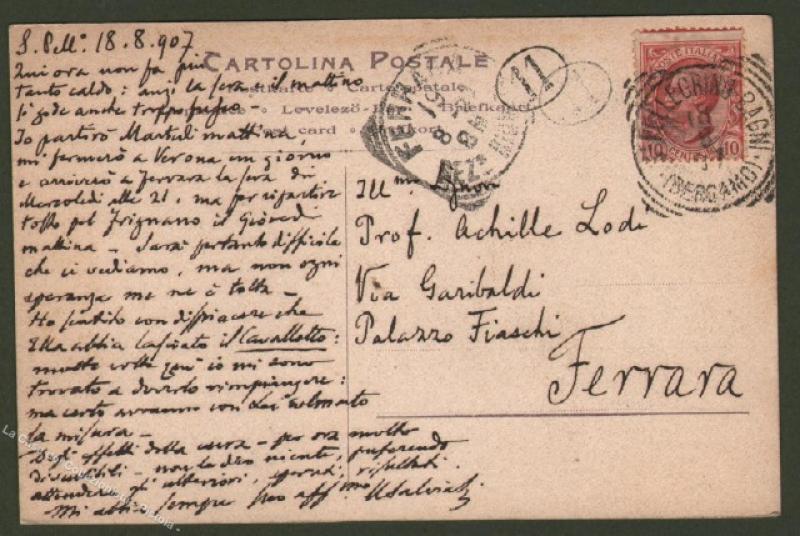 S. Pell.° 18.8.907
Qui ora non fa più
tanto caldo: anzi la sera e il mattino
si gode anche troppo fresco -
Io partirò Martedì mattina,
mi fermerò a Verona un giorno
e arriverò a Ferrara la sera di
Mercoledì alle 21. ma per ripartire
tosto pel Frignano il Giovedì
mattina - Sarà pertanto difficile
che ci vediamo, ma non ogni
speranza me ne è tolta -
Ho sentito con dispiacere che
Ella abbia lasciato il Cavalletto:
molte volte io mi sono
trovato a doverlo rimpiangere:
ma certo avranno con Lei colmato
la misura -
Degli effetti della cura - per ora molto
discutibili - non Le dico niente, preferendo
attendere gli ulteriori, sperati, risultati.
Mi abbia sempre suo aff.mo
CARTOLINA POSTALE
Levelező
Briefkaart
FERRARA
11
POSTE ITALIANE
10 CENTESIMI 10
PELLEGRINO BAGNI
(BERGAMO)
Ill.mo Signor
Prof. Achille Lodi
Via Garibaldi
Palazzo Fiaschi
Ferrara